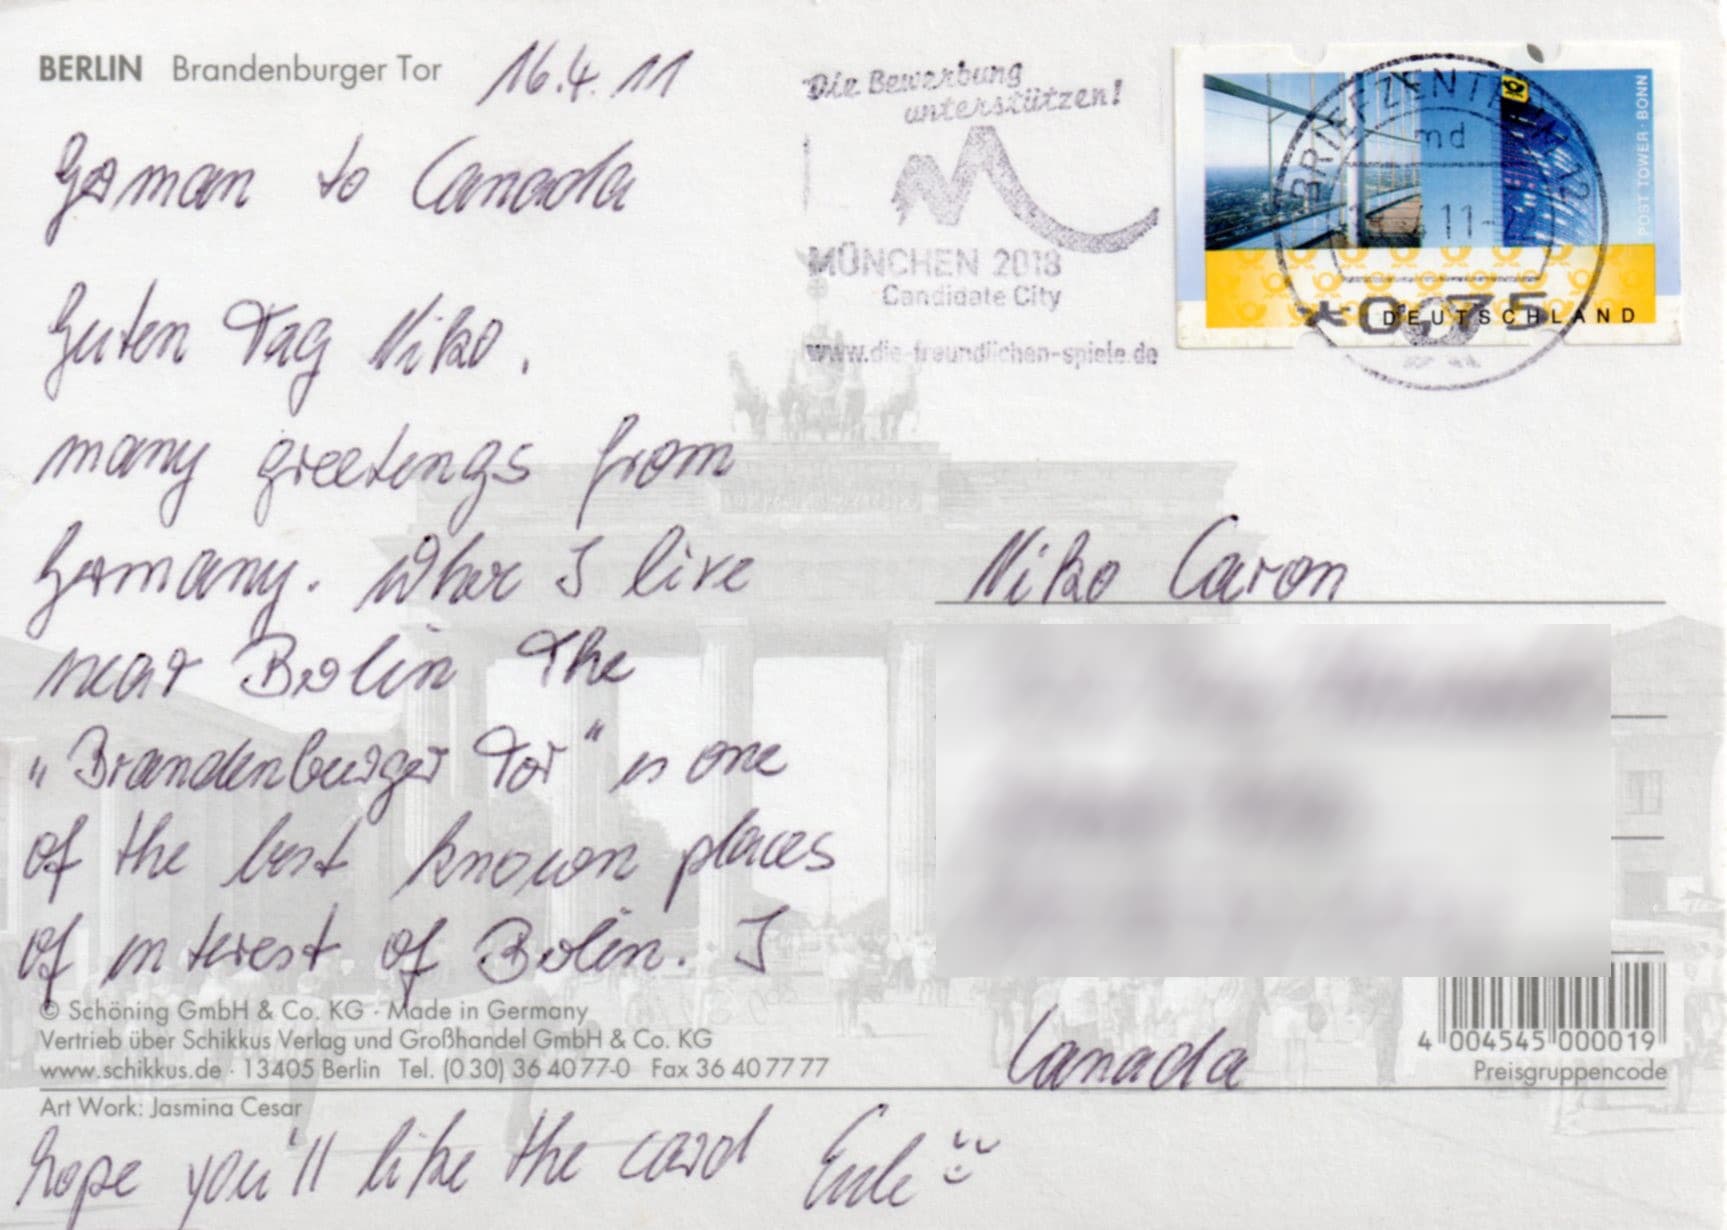 BERLIN Brandenburger Tor 16.4.11
German to Canada
Guten Tag Niko,
many greetings from
Germany. Wher I live
near Berlin The
„Brandenburger Tor" is one
of the best known places
of interest of Berlin. I
© Schöning GmbH & Co. KG · Made in Germany
Vertrieb über Schikkus Verlag und Großhandel GmbH & Co. KG
www.schikkus.de · 13405 Berlin Tel. (0 30) 36 40 77-0 Fax 36 40 77 77
Art Work: Jasmina Cesar
hope you'll like the card Eule
Die Bewerbung
unterstützen!
MÜNCHEN 2018
Candidate City
www.die-freundlichen-spiele.de
BRIEFZENTRUM
md
11
POST TOWER · BONN
*0,75
DEUTSCHLAND
Niko Caron
Canada
4 004545 000019
Preisgruppencode